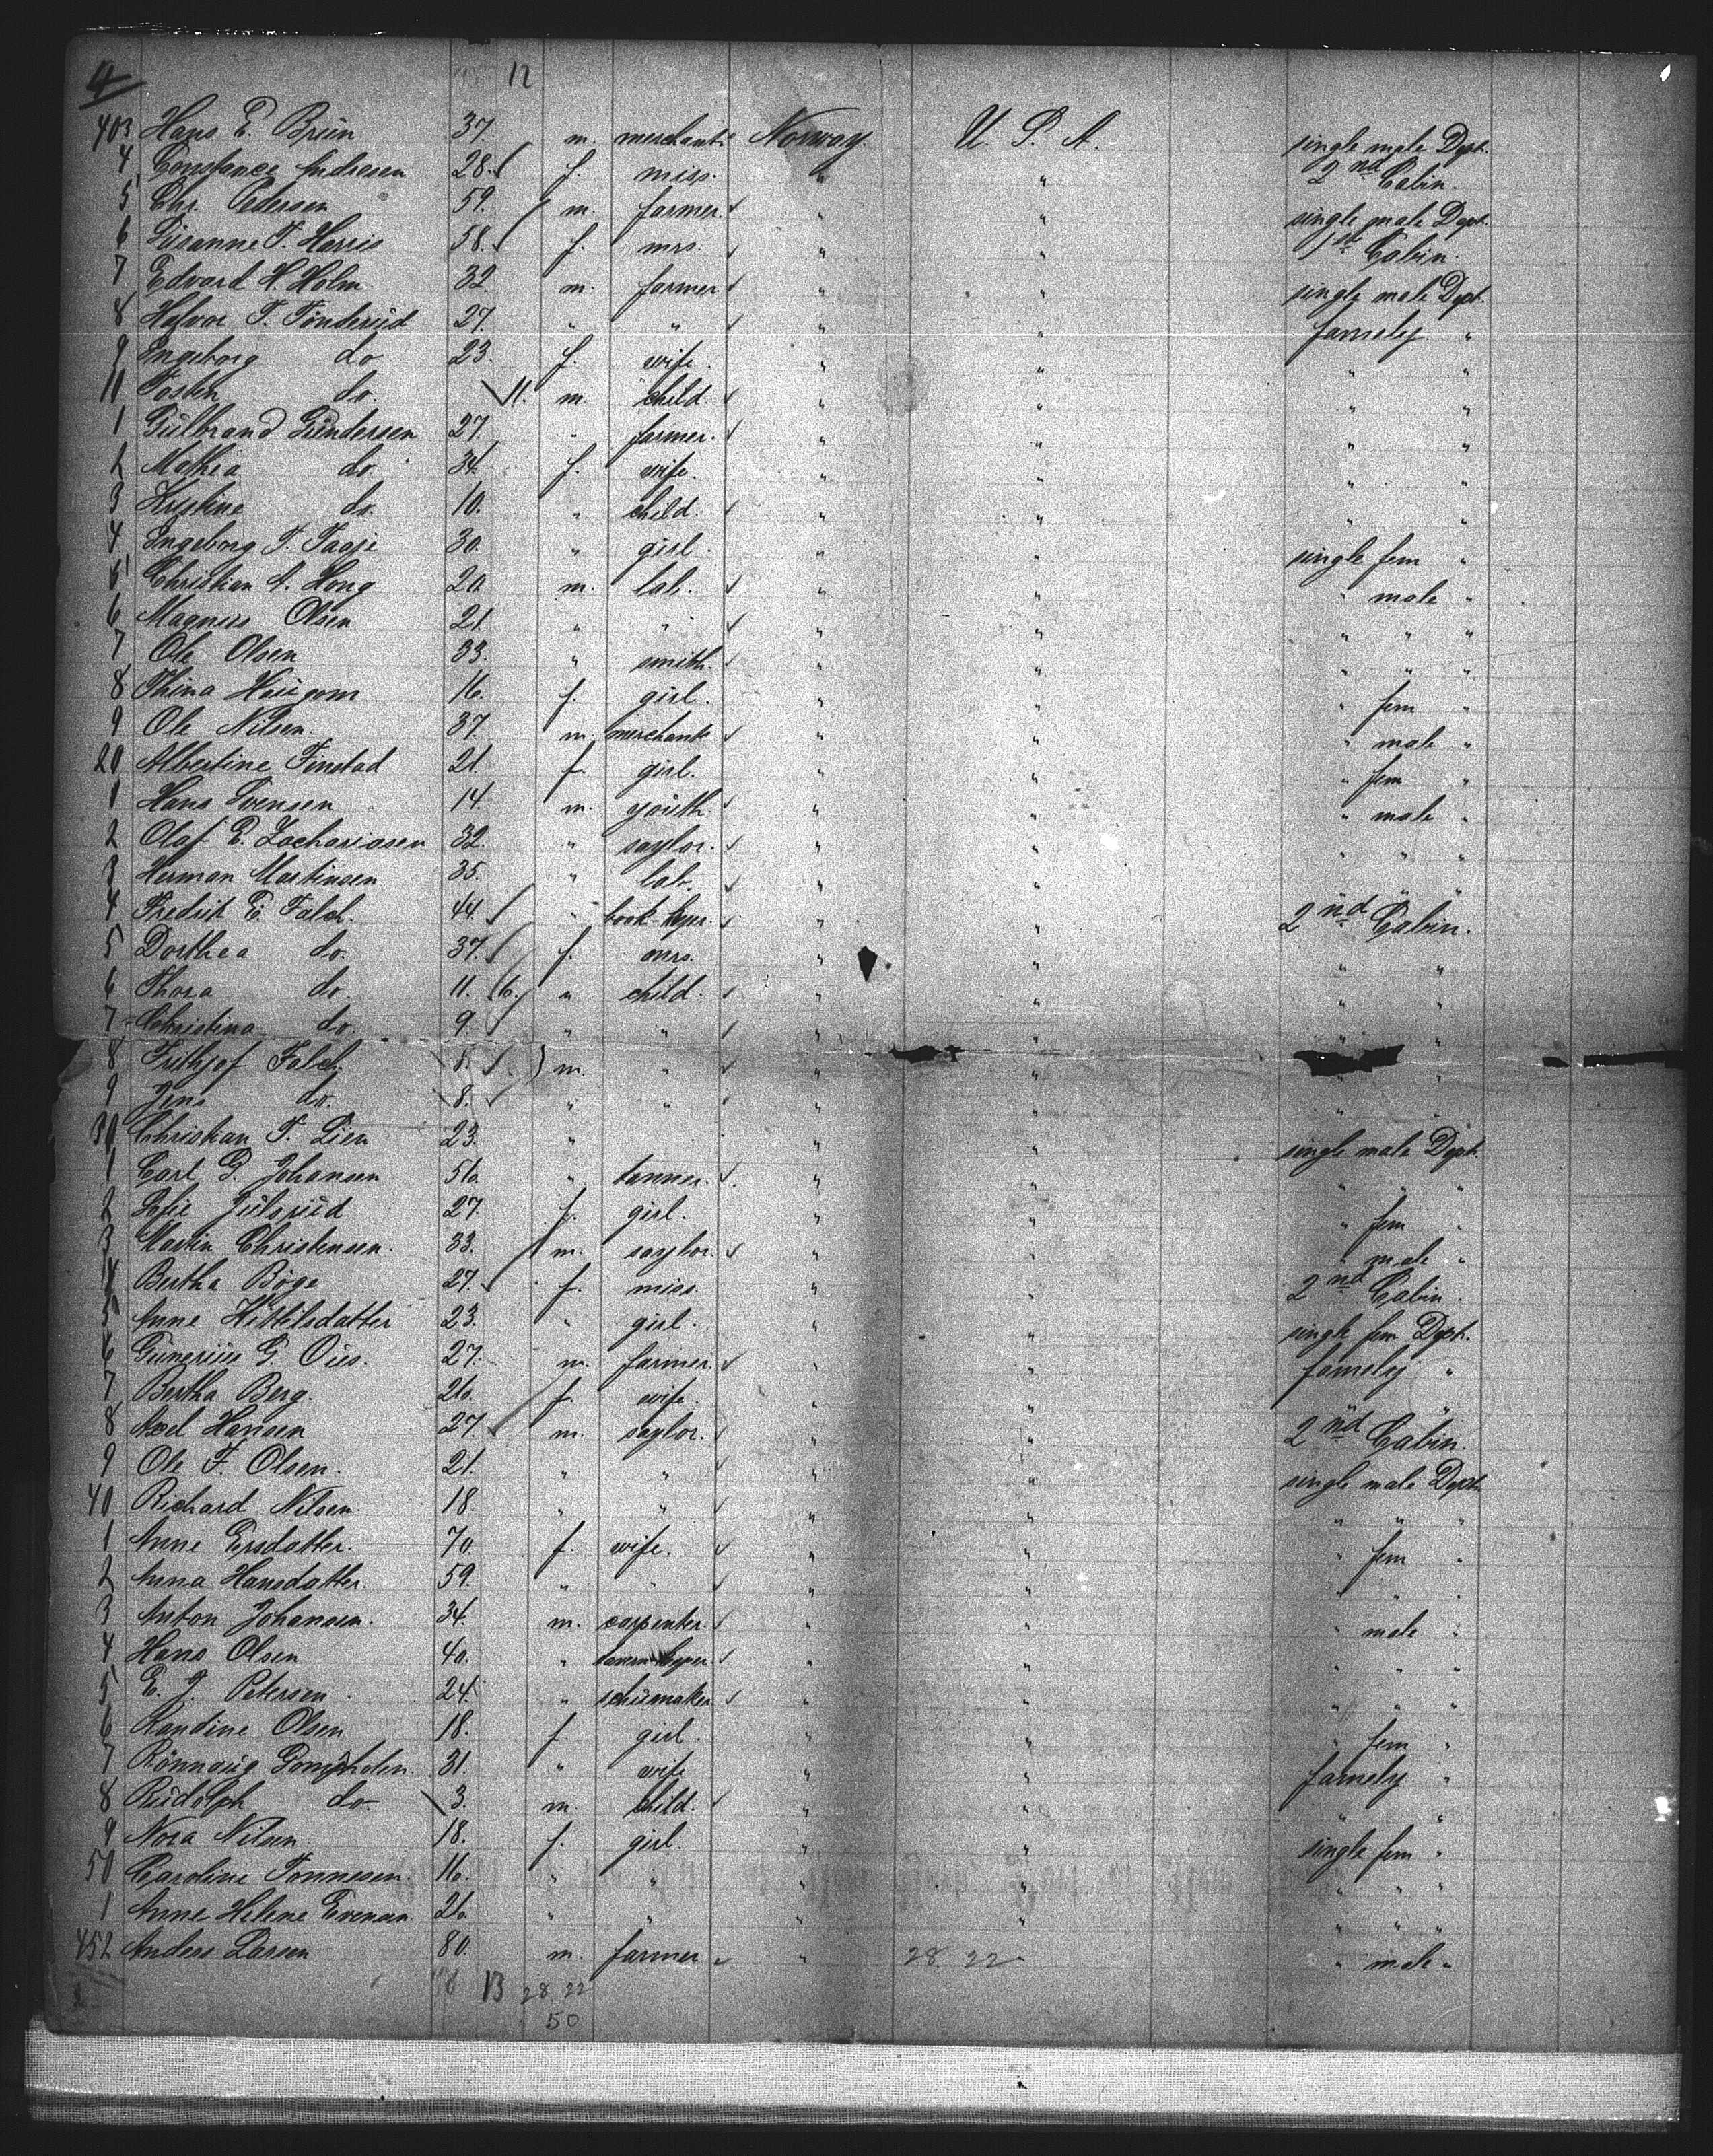 4 12
403 Hans E. Brün 37. m. merchant Norway. U. S. A. single male Dept.
4 Constance Andresen 28. f. miss. " " 2nd Cabin.
5 Chr. Pedersen 59. m. farmer. " " single male Dept.
6 Susanne T. Harris 58. f. mrs. " " 1st Cabin.
7 Edvard H. Holm 32 m. farmer " " single male Dept.
8 Halvor T. Tönderüd 27. " " " " famely. "
9 Ingeborg do 23. f. wife. " " " "
11 Tosten do. 11. m. child. " " " "
1 Gülbrand Gündersen 27. " farmer. " " " "
2 Mathea do. 34. f. wife. " " " "
3 Kristine do. 10. " child. " " " "
4 Ingeborg T. 30. " girl. " " single fem "
5 Christian A. Houg 20. m. lab. " " " male "
6 Magnus Olsen 21. " " " " " " "
7 Ole Olsen 33. " smith. " " " " "
8 Thina Haugom 16. f. girl. " " " fem "
9 Ole Nilsen. 37. m. merchant " " " male "
20 Albertine Finstad 21. f. girl. " " " fem "
1 Hans Svensen 14. m. youth " " " male "
2 Olaf E. Zachariasen 32. " saylor. " " " " "
3 Herman Martinsen 35. " lab. " " " " "
4 Fredrik E. Falch. 44. " book-keper. " " 2nd Cabin.
5 Dorthea do. 37. f. mrs. " " " "
6 Thora do 11. 6. " child. " " " "
7 Christina do. 9 " " " " " "
8 Frithjof Falch 8. m. " " " " "
9 Jens do. 8. " " " " "
30 Christian T. Lien 23. " " " single male Dept.
1 Carl G. Johansen 56. " tanner. " " " " "
2 Julsrüd 27. f. girl. " " " fem "
3 Martin Christensen. 33. m. saylor. " " " male "
4 Bertha Böge 27. f. miss. " " 2nd Cabin.
5 Anne Kittilsdatter 23. " girl. " " single fem Dept.
6 G. 27. m. farmer. " " famely "
7 Bertha Berg. 26. f. wife. " " " "
8 Axel Hansen 27. m. saylor. " " 2nd Cabin.
9 Ole F. Olsen. 21. " " " " single male Dept.
40 Richard Nilsen. 18. " " " " " " "
1 Anne Ersdatter. 70. f. wife. " " " fem "
2 Anna Hansdatter. 59. " " " " " " "
3 Anton Johansen. 34. m. carpenter. " " " male "
4 Hans Olsen 40. " tavern-keper. " " " " "
5 E. J. Petersen 24. " schümaker " " " " "
6 Randine Olsen 18. f. girl. " " " fem "
7 Rönnaug 31. " wife " " famely "
8 Rüdolph do. 3. m. child. " " " "
9 Nora Nilsen 18. f. girl. " " single fem "
50 Caroline Tönnesen. 16. " " " " " " "
1 Anne Helene Evensen 26. " " " " " " "
452 Anders Larsen 80. m. farmer " 28. 22 " male "
13 28 22
50